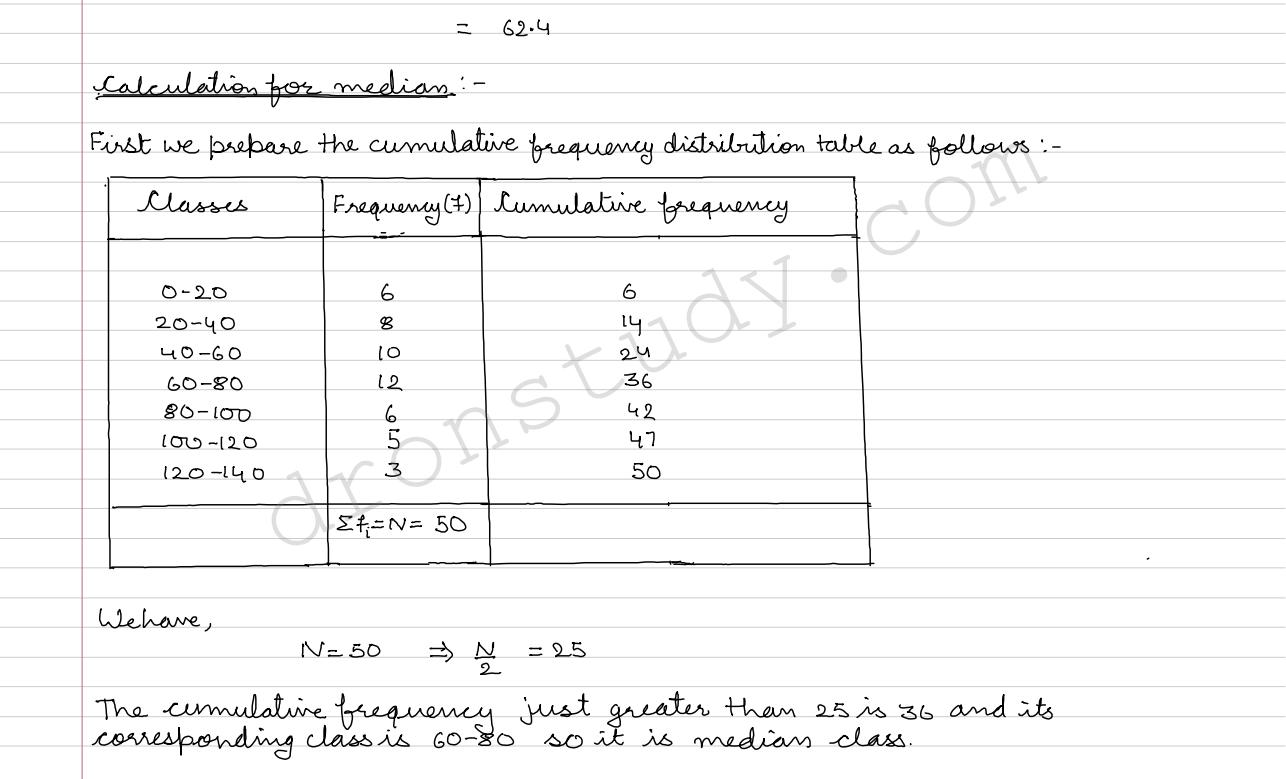 = 62.4
Calculation for median :-
First we prepare the cumulative frequency distribution table as follows :-
Classes Frequency (f) Cumulative frequency
0-20 6 6
20-40 8 14
40-60 10 24
60-80 12 36
80-100 6 42
100-120 5 47
120-140 3 50
Σfi = N = 50
We have,
N = 50 ⇒ N/2 = 25
The cumulative frequency just greater than 25 is 36 and its
corresponding class is 60-80 so it is median class.
dronstudy.com